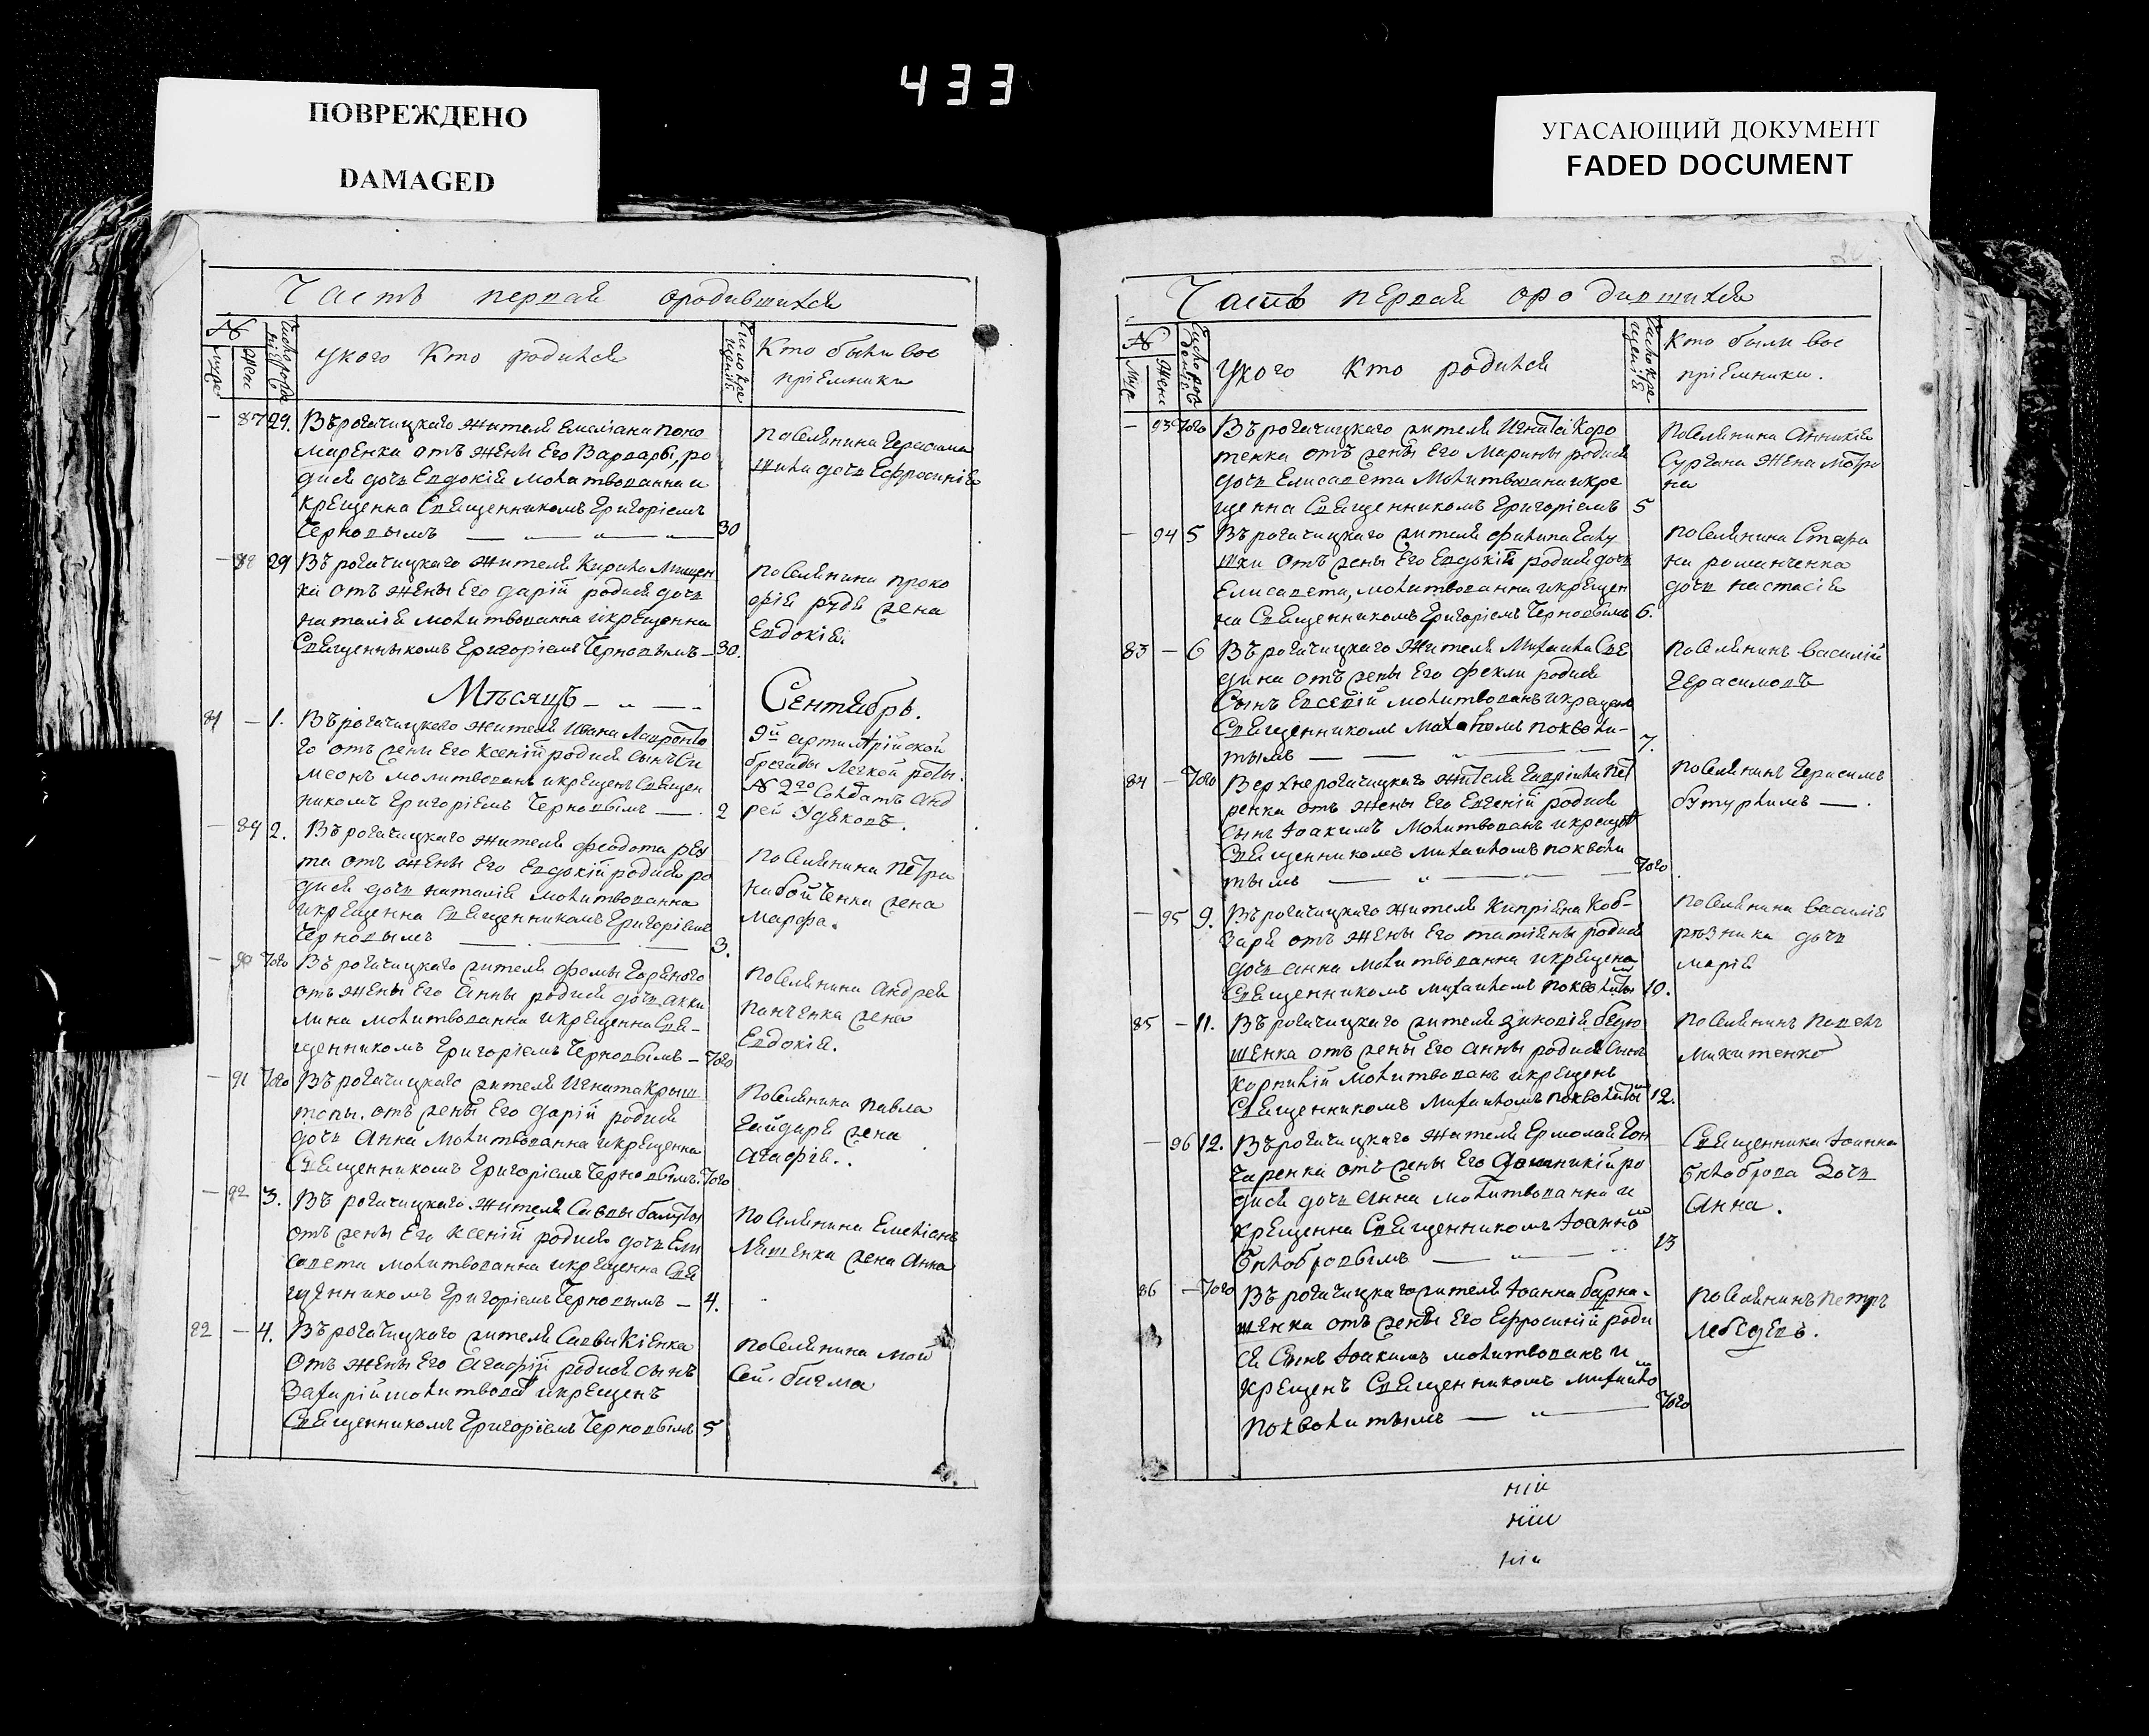 433
ПОВРЕЖДЕНО
DAMAGED
УГАСАЮЩИЙ ДОКУМЕНТ
FADED DOCUMENT
Часть первая ородившихся
№
Муже
Жен
укого Кто родился
Кто были вос
пріемники
87 29. Въ рогачицкаго жителя Емеліана Поно
маренка отъ жены Его Варвары, ро
дися дочь Евдокія молитвованна и
крещенна Священникомъ Григоріемъ
Черновымъ 30
поселянина Герасима
дочь Ефросинія
88 29 Въ рогачицкаго жителя Кирила
отъ жены Его Дарій родися дочь
Наталія молитвованна икрещенна
Священникомъ Григоріемъ Черновымъ 30.
поселянина проко
фія рудя жена
Евдокія.
Мѣсяцъ Сентябрь.
81 1. Въ рогачицкаго жителя Ивана
го отъ жены Его Ксеній родися сынъ Си
меонъ молитвованъ икрещенъ Священ
никомъ Григоріемъ Черновымъ 2
9й артилерійской
брегады Легкой роты
№ 2го Солдатъ Анд
рей
89 2. Въ рогачицкаго жителя Феодота реу
та отъ жены Его Евдокій родися ро
дися дочь Наталія молитвованна
икрещенна Священникомъ Григоріемъ
Черновымъ 3.
поселянина Петра
набойченка жена
Марфа.
90 Того Въ рогачицкаго жителя Фомы
отъ жены Его Анны родися дочь Акки
лина молитвованна икрещенна Све-
щенникомъ Григоріемъ Черновымъ Того
поселянина Андрея
Панченка жена
Евдокія.
91 Того Въ рогачицкаго жителя Игната Крыш
топы. отъ жены Его Дарій родися
дочь Анна молитвованна икрещенна
Священникомъ Григоріемъ Черновымъ. Того
поселянина Павла
Гайдаря жена
Агафія.
92 3. Въ рогачицкаго жителя Саввы
отъ жены Его Ксеній родися дочь Ели
савета молитвованна икрещенна Све
щенникомъ Григоріемъ Черновымъ 4.
поселянина Емеліана
жена Анна
82 4. Въ рогачицкаго жителя Саввы Кіенка
Отъ жены Его Агафій родися сынъ
Захарій молитвованъ икрещенъ
Священникомъ Григоріемъ Черновымъ 5
поселянина Мой
сей
Часть первая ородившихся
№
Муже
Жене
Укого Кто родился
Кто были вос
пріемники.
93 Того Въ рогачицкаго жителя Игнатія Коро
тенка отъ жены Его Марины родися
дочь Елисавета Молитвована икре
щенна Священникомъ Григоріемъ 5
поселянина Анникія
жена Мотро
на
94 5 Въ рогачицкаго жителя Филипа Галу
шки отъ жены Его Евдокій родися дочь
Елисавета, молитвованна икрещен
на Священникомъ Григоріемъ Черновымъ 6.
поселянина
романченка
дочь настасія
83 6 Въ рогачицкаго Жителя Михаила
отъ жены Его Феклы родися
Сынъ Евсевій молитвованъ икрещенъ
Священникомъ Михаиломъ похвали-
тымъ 7.
поселянинъ Василій
Герасимовъ
84 Того Верхнерогачицкаго жителя Гавріила Пет
ренка отъ жены Его Евгеній родися
сынъ Іоакимъ Молитвованъ икрещенъ
Священникомъ Михаиломъ похвали
тымъ Того
поселянинъ Герасимъ
95 9. Въ рогачицкаго жителя Кипріяна Коб-
заря отъ жены Его татіяны родися
дочь Анна молитвованна икрещена
Священникомъ Михаиломъ 10.
поселянина Василія
рѣзника дочь
марія
85 11. Въ рогачицкаго жителя Зиновія
отъ жены Его Анны родися Сынъ
Корнилій Молитвованъ икрещенъ
Священникомъ Михаиломъ 12.
поселянинъ Павелъ
Микитенко
96 12. Въ рогачицкаго жителя Ермолая Гон
чаренка отъ жены Его Домникій ро
дися дочь Анна молитвованна и
крещенна Священникомъ Іоанномъ
Бѣлобровымъ 13
Священника Іоанна
Бѣлоброва Дочь
Анна.
86 Того Въ рогачицкаго жителя Іоанна
отъ жены Его Ефросиній роди
ся Сынъ Іоакимъ молитвованъ и
крещенъ Священникомъ Михаило
похвалитымъ Того
поселянинъ петръ
лебедевъ.